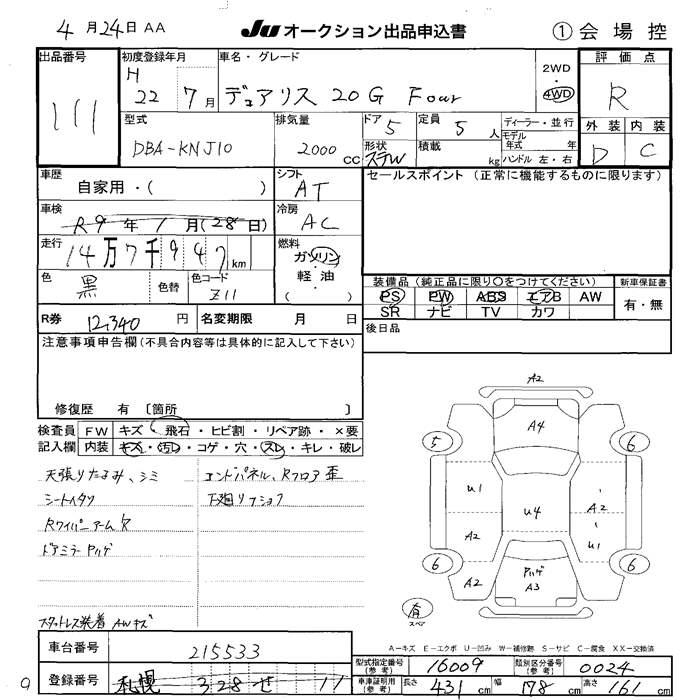 4月24日 AA
JU オークション出品申込書
① 会場控
出品番号
111
初度登録年月
H 22 7月
車名・グレード
デュアリス 20G Four
2WD・4WD
評価点
R
外装 内装
D C
型式
DBA-KNJ10
排気量
2000 cc
ドア 5
形状 STW
定員 5人
積載 kg
ディーラー・並行
モデル年式 年
ハンドル 左・右
車歴
自家用・( )
シフト
AT
セールスポイント(正常に機能するものに限ります)
車検
R9年1月(28日)
冷房
AC
走行
14万7千947km
燃料
ガソリン
軽・油
( )
色
黒
色替
色コード
Z11
装備品(純正品に限り○をつけてください)
新車保証書
PS PW ABS エアB AW
有・無
SR ナビ TV カワ
R券
12,340円
名変期限 月 日
後日品
注意事項申告欄(不具合内容等は具体的に記入して下さい)
修復歴 有 〔箇所 〕
検査員記入欄
FW キズ・飛石・ヒビ割・リペア跡・×要
内装 キズ・汚れ・コゲ・穴・スレ・キレ・破レ
天張りたるみ、シミ
シートヘタリ
Rワイパーアームサビ
ドアミラーPハゲ
スタットレス装着 AWキズ
エンドパネル、Rフロア歪
下廻りサビ
A2
A4
5
6
U1
U4
A2
A2
U1
6
6
A2
Pハゲ
A3
有
スペア
A-キズ E-エクボ U-凹み W-補修跡 S-サビ C-腐食 XX-交換済
車台番号
215533
登録番号
札幌 328 せ 11
型式指定番号(参考)
16009
類別区分番号(参考)
0024
車庫証明用(参考)
長さ 431cm
幅 178cm
高さ 161cm